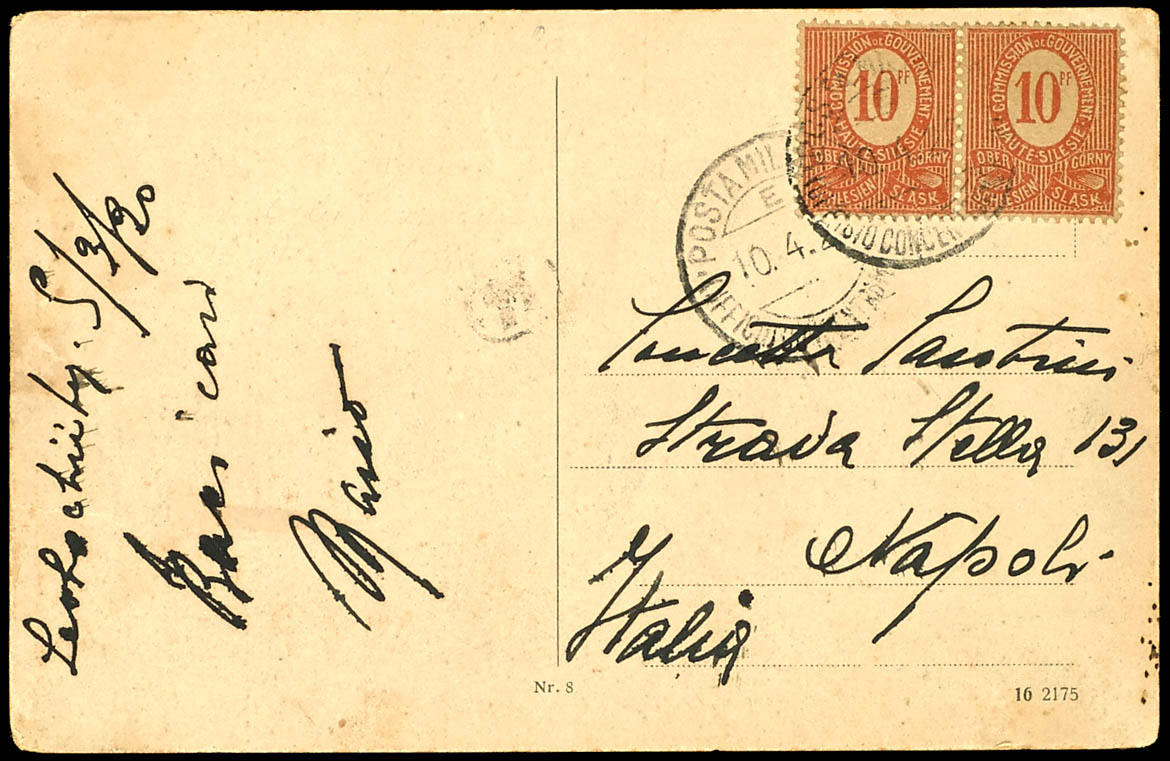 Leobschütz. 5/3/20
Baci cari
Mario
COMMISSION DE GOUVERNEMENT
HAUTE-SILÉSIE
10 PF
OBER SCHLESIEN
GORNY SLASK
COMMISSION DE GOUVERNEMENT
HAUTE-SILÉSIE
10 PF
OBER SCHLESIEN
GORNY SLASK
POSTA MIL
10.4.2
Strada Stella 131
Napoli
Italia
Nr. 8
16 2175